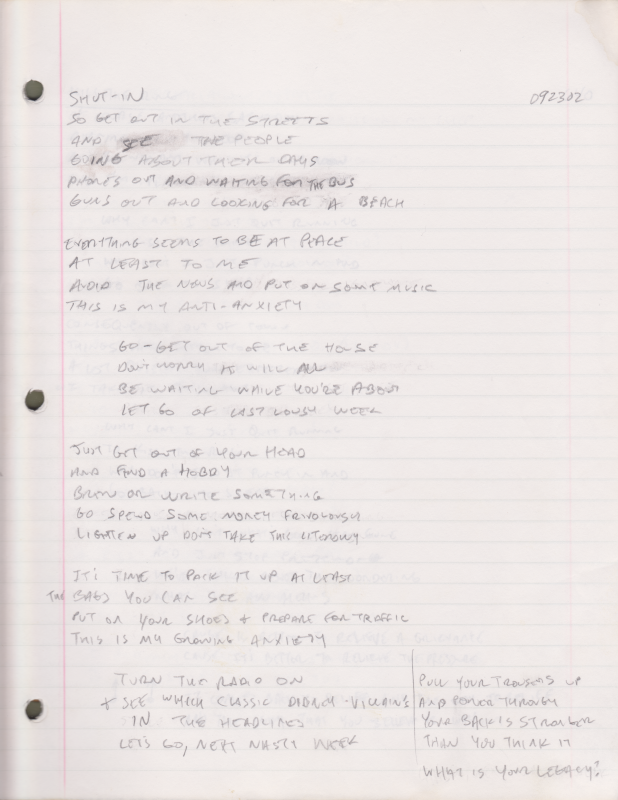 SHUT-IN
092302
SO GET OUT IN THE STREETS
AND SEE THE PEOPLE
GOING ABOUT THEIR DAYS
PHONES OUT AND WAITING FOR THE BUS
GUNS OUT AND LOOKING FOR A BEACH
EVERYTHING SEEMS TO BE AT PEACE
AT LEAST TO ME
AVOID THE NEWS AND PUT ON SOME MUSIC
THIS IS MY ANTI-ANXIETY
GO-GET OUT OF THE HOUSE
DON'T WORRY IT WILL ALL
BE WAITING WHILE YOU'RE ABOUT
LET GO OF LAST LOUSY WEEK
JUST GET OUT OF YOUR HEAD
AND FIND A HOBBY
BREW OR WRITE SOMETHING
GO SPEND SOME MONEY FRIVOLOUSLY
LIGHTEN UP DON'T TAKE THIS LITERALLY
IT'S TIME TO PACK IT UP AT LEAST
THE BAGS YOU CAN SEE
PUT ON YOUR SHOES + PREPARE FOR TRAFFIC
THIS IS MY GROWING ANXIETY
TURN THE RADIO ON
+ SEE WHICH CLASSIC VILLAIN'S
IN THE HEADLINES
LET'S GO, NEXT NASTY WEEK
PULL YOUR TROUSERS UP
AND POWER THROUGH
YOUR BACK IS STRONGER
THAN YOU THINK IT
WHAT IS YOUR LEGACY?